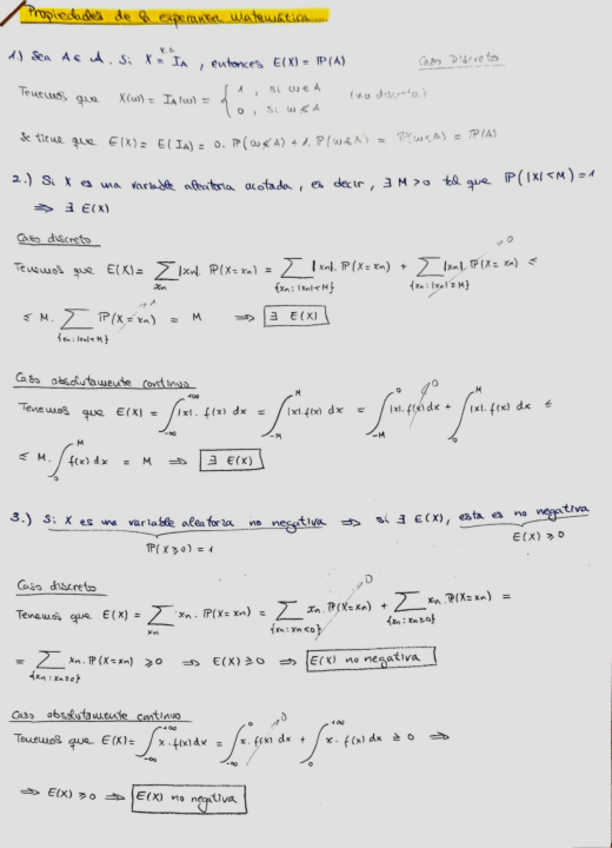 Propiedades de la esperanza matemática
1.) Sea A ∈ 𝒜. Si X = I_A (v.a), entonces E(X) = P(A)
Caso Discreto
Tenemos que X(ω) = I_A(ω) = { 1, si ω∈A (va discreta)
0, si ω∉A
Se tiene que E(X) = E(I_A) = 0. P(ω∉A) + 1. P(ω∈A) = P(ω∈A) = P(A)
2.) Si X es una variable aleatoria acotada, es decir, ∃ M>0 tal que P(|X|<M)=1
⇒ ∃ E(X)
Caso discreto
Tenemos que E(X) = ∑_{xn} |xn|. P(X=xn) = ∑_{{xn:|xn|<M}} |xn|. P(X=xn) + ∑_{{xn:|xn|≥M}} |xn|. P(X=xn) → 0 ≤
≤ M. ∑_{{xn:|xn|<M}} P(X=xn) → 1 = M ⇒ ∃ E(X)
Caso absolutamente continuo
Tenemos que E(X) = ∫_{-∞}^{+∞} |x|. f(x) dx = ∫_{-M}^{M} |x|. f(x) dx = ∫_{-M}^{0} |x|. f(x) dx → 0 + ∫_{0}^{M} |x|. f(x) dx ≤
≤ M. ∫_{0}^{M} f(x) dx = M ⇒ ∃ E(X)
3.) Si X es una variable aleatoria no negativa ⇒ si ∃ E(X), esta es no negativa
P(X≥0) = 1 E(X) ≥ 0
Caso discreto
Tenemos que E(X) = ∑_{xn} xn. P(X=xn) = ∑_{{xn:xn<0}} xn. P(X=xn) → 0 + ∑_{{xn:xn≥0}} xn. P(X=xn) =
= ∑_{{xn:xn≥0}} xn. P(X=xn) ≥ 0 ⇒ E(X) ≥ 0 ⇒ E(X) no negativa
Caso absolutamente continuo
Tenemos que E(X) = ∫_{-∞}^{+∞} x. f(x) dx = ∫_{-∞}^{0} x. f(x) dx → 0 + ∫_{0}^{+∞} x. f(x) dx ≥ 0 ⇒
⇒ E(X) ≥ 0 ⇒ E(X) no negativa